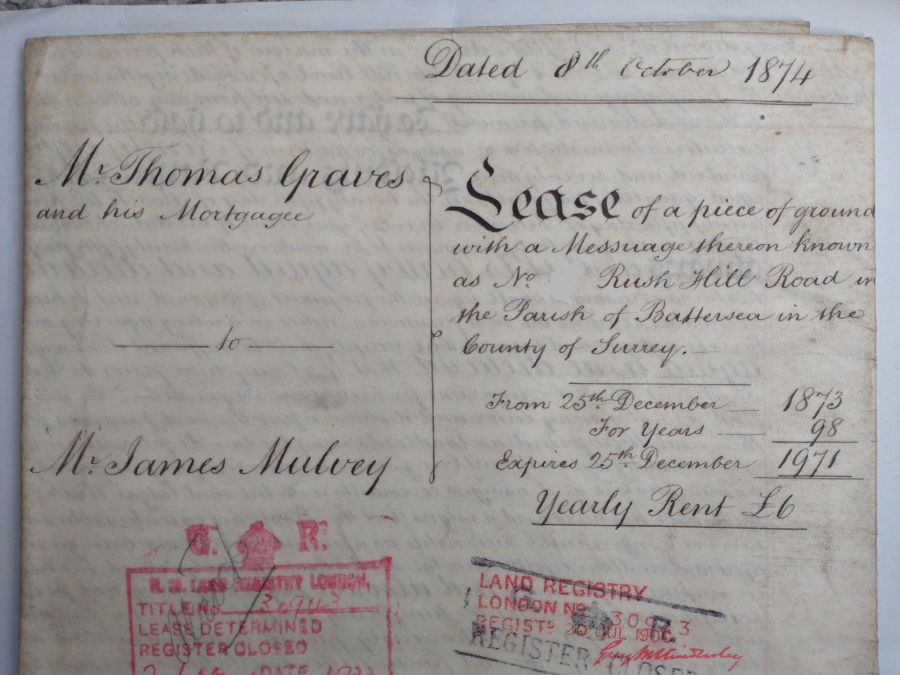 Dated 8th October 1874
Mr. Thomas Graves
and his Mortgagee
to
Mr. James Mulvey
Lease of a piece of ground
with a Messuage thereon known
as No. Rush Hill Road in
the Parish of Battersea in the
County of Surrey.
From 25th December 1873
For Years 98
Expires 25th December 1971
Yearly Rent £6
G. R.
H. M. LAND REGISTRY LONDON,
TITLE No
LEASE DETERMINED
REGISTER CLOSED
DATE
LAND REGISTRY
LONDON No
REGISTD
R.
REGISTER CLOSED